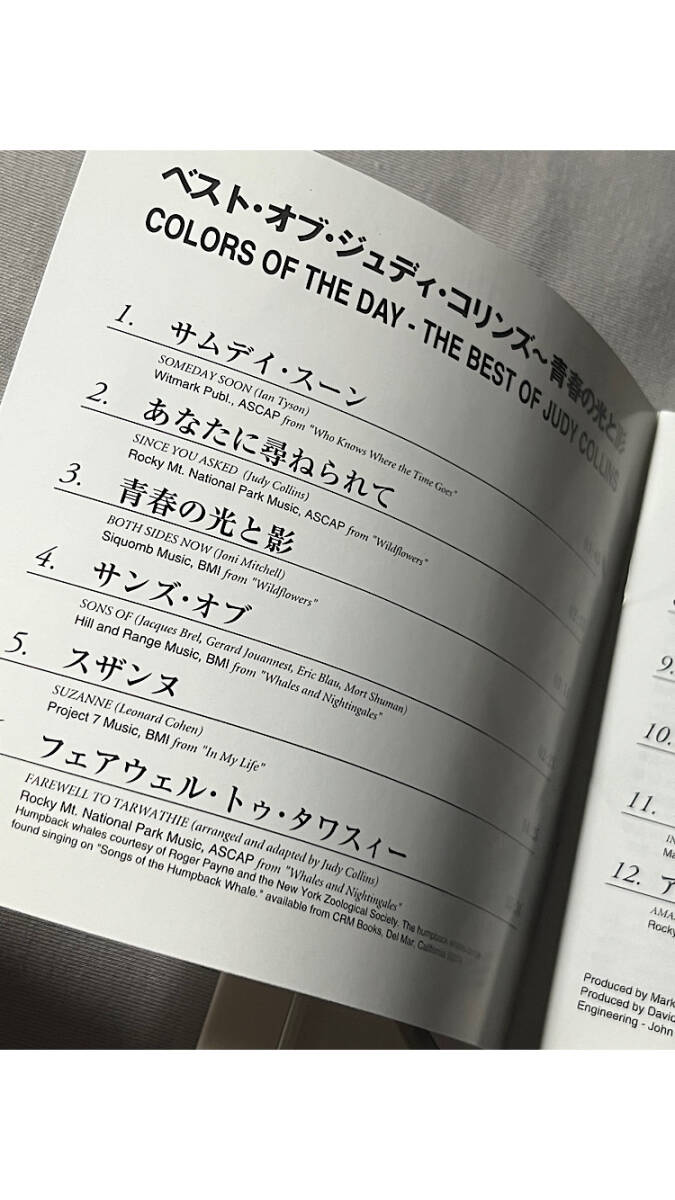 ベスト・オブ・ジュディ・コリンズ〜青春の光と影
COLORS OF THE DAY - THE BEST OF JUDY COLLINS
1. サムデイ・スーン
SOMEDAY SOON (Ian Tyson)
Witmark Publ., ASCAP from "Who Knows Where the Time Goes"
2. あなたに尋ねられて
SINCE YOU ASKED (Judy Collins)
Rocky Mt. National Park Music, ASCAP from "Wildflowers"
3. 青春の光と影
BOTH SIDES NOW (Joni Mitchell)
Siquomb Music, BMI from "Wildflowers"
4. サンズ・オブ
SONS OF (Jacques Brel, Gerard Jouannest, Eric Blau, Mort Shuman)
Hill and Range Music, BMI from "Whales and Nightingales"
5. スザンヌ
SUZANNE (Leonard Cohen)
Project 7 Music, BMI from "In My Life"
フェアウェル・トゥ・タワスィー
FAREWELL TO TARWATHIE (arranged and adapted by Judy Collins)
Rocky Mt. National Park Music, ASCAP from "Whales and Nightingales"
Humpback whales courtesy of Roger Payne and the New York Zoological Society. The humpback
found singing on "Songs of the Humpback Whale." available from CRM Books, Del Mar, California
9.
10.
11.
IN
Ma
12. ア
AMA
Rocky
Produced by Mark
Produced by David
Engineering - John